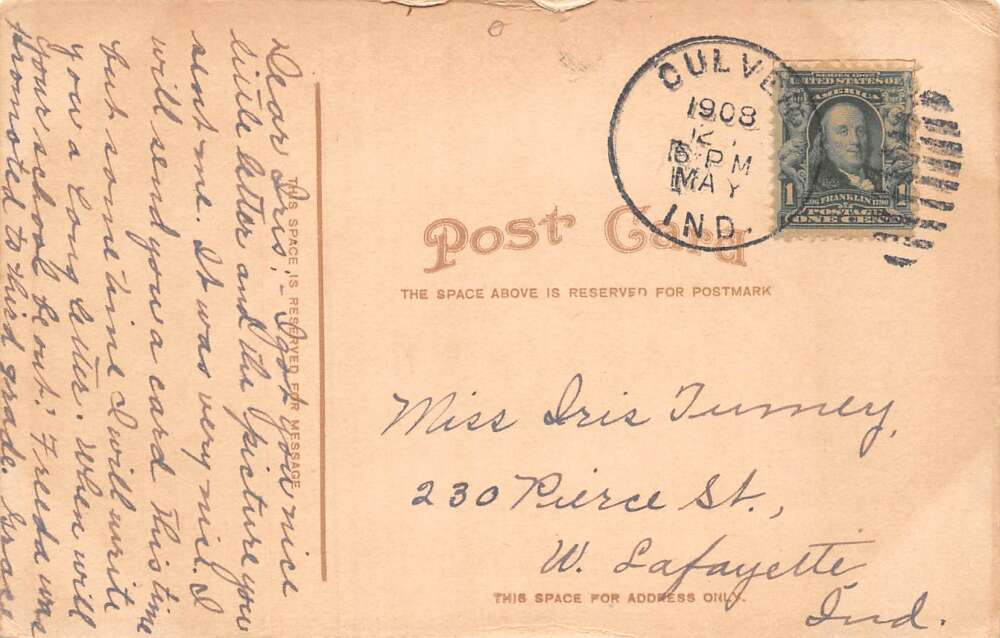 Dear Iris;- I got you nice
little letter and the picture you
sent me. It was very nice. I
will send you a card this time
but some time I will write
you a long letter. When will
your school be out? Freeda was
promoted to third grade. Grace
THIS SPACE IS RESERVED FOR MESSAGE
CULVE
1908
6-PM
MAY
IND.
SERIES 1902
UNITED STATES OF
AMERICA
1
1
FRANKLIN 1790
POSTAGE
ONE CENT
Post Card
THE SPACE ABOVE IS RESERVED FOR POSTMARK
Miss Iris Tumey,
230 Pierce St.,
W. Lafayette,
Ind.
THIS SPACE FOR ADDRESS ONLY.